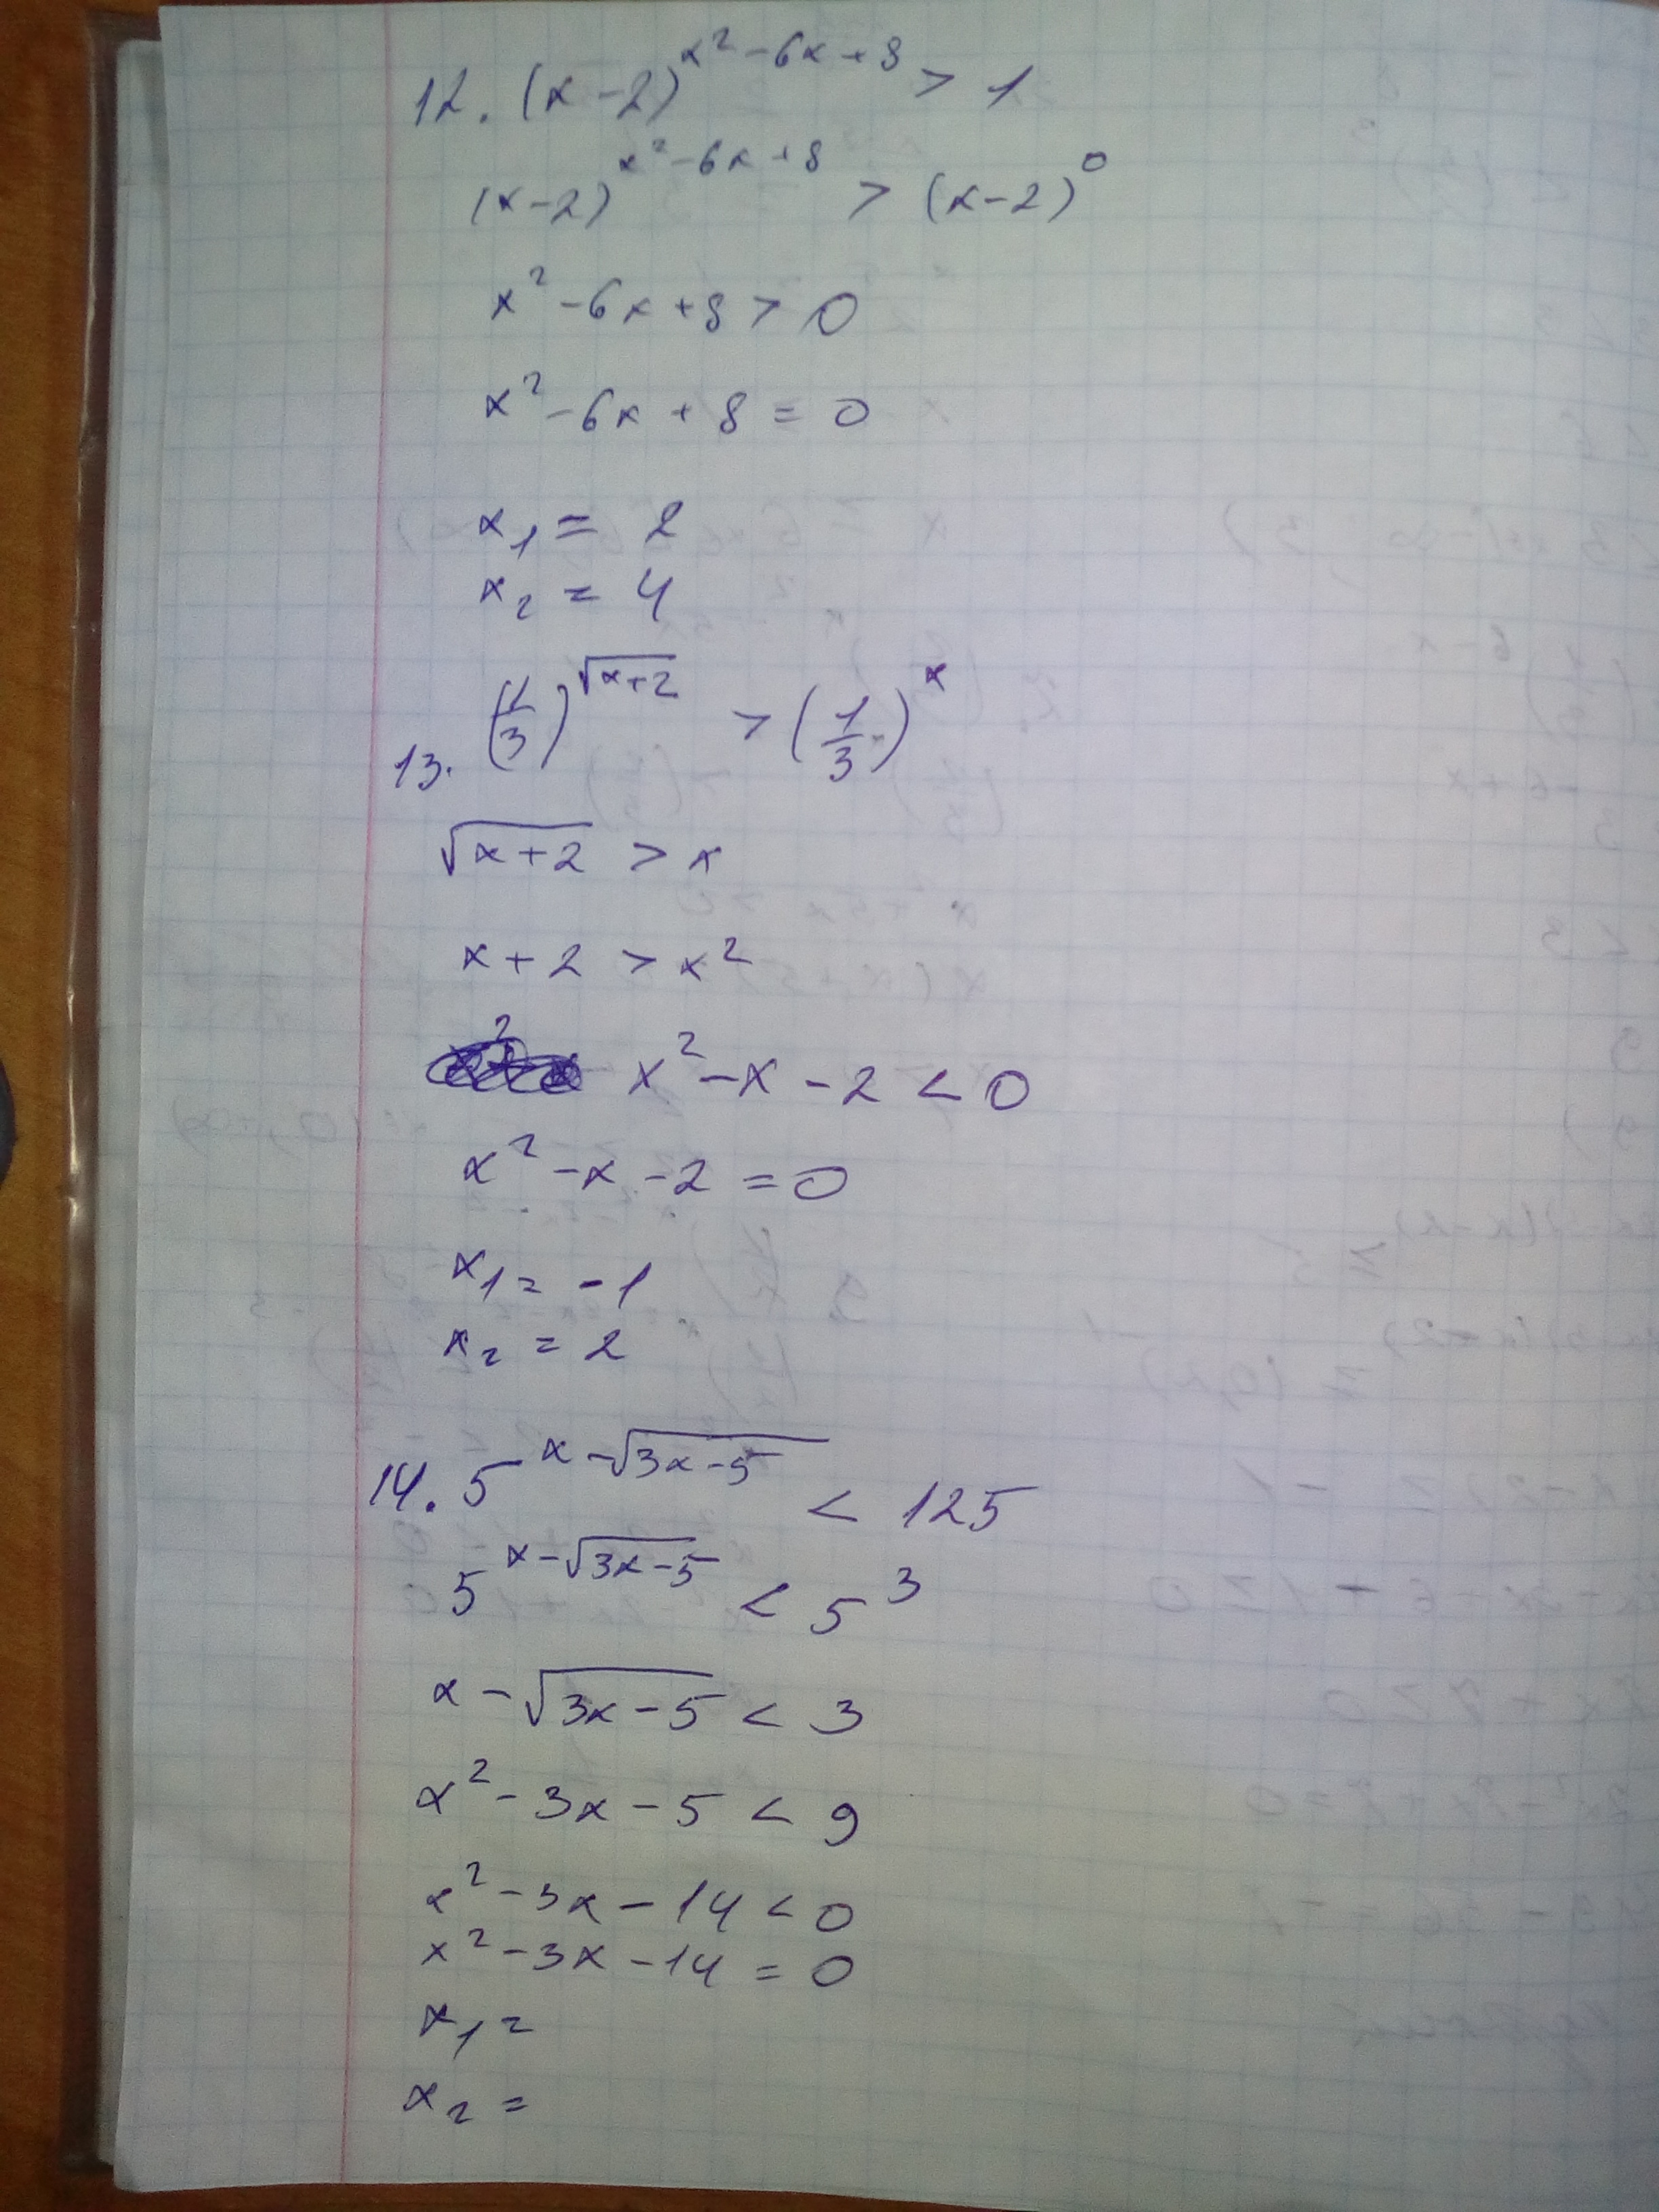 12. (x-2)^{x²-6x+8} > 1
(x-2)^{x²-6x+8} > (x-2)^0
x²-6x+8 > 0
x²-6x+8 = 0
x₁ = 2
x₂ = 4
13. (1/3)^{√(x+2)} > (1/3)^x
√(x+2) > x
x+2 > x²
x²-x-2 < 0
x²-x-2 = 0
x₁ = -1
x₂ = 2
14. 5^{x-√(3x-5)} < 125
5^{x-√(3x-5)} < 5³
x-√(3x-5) < 3
x²-3x-5 < 9
x²-3x-14 < 0
x²-3x-14 = 0
x₁ =
x₂ =